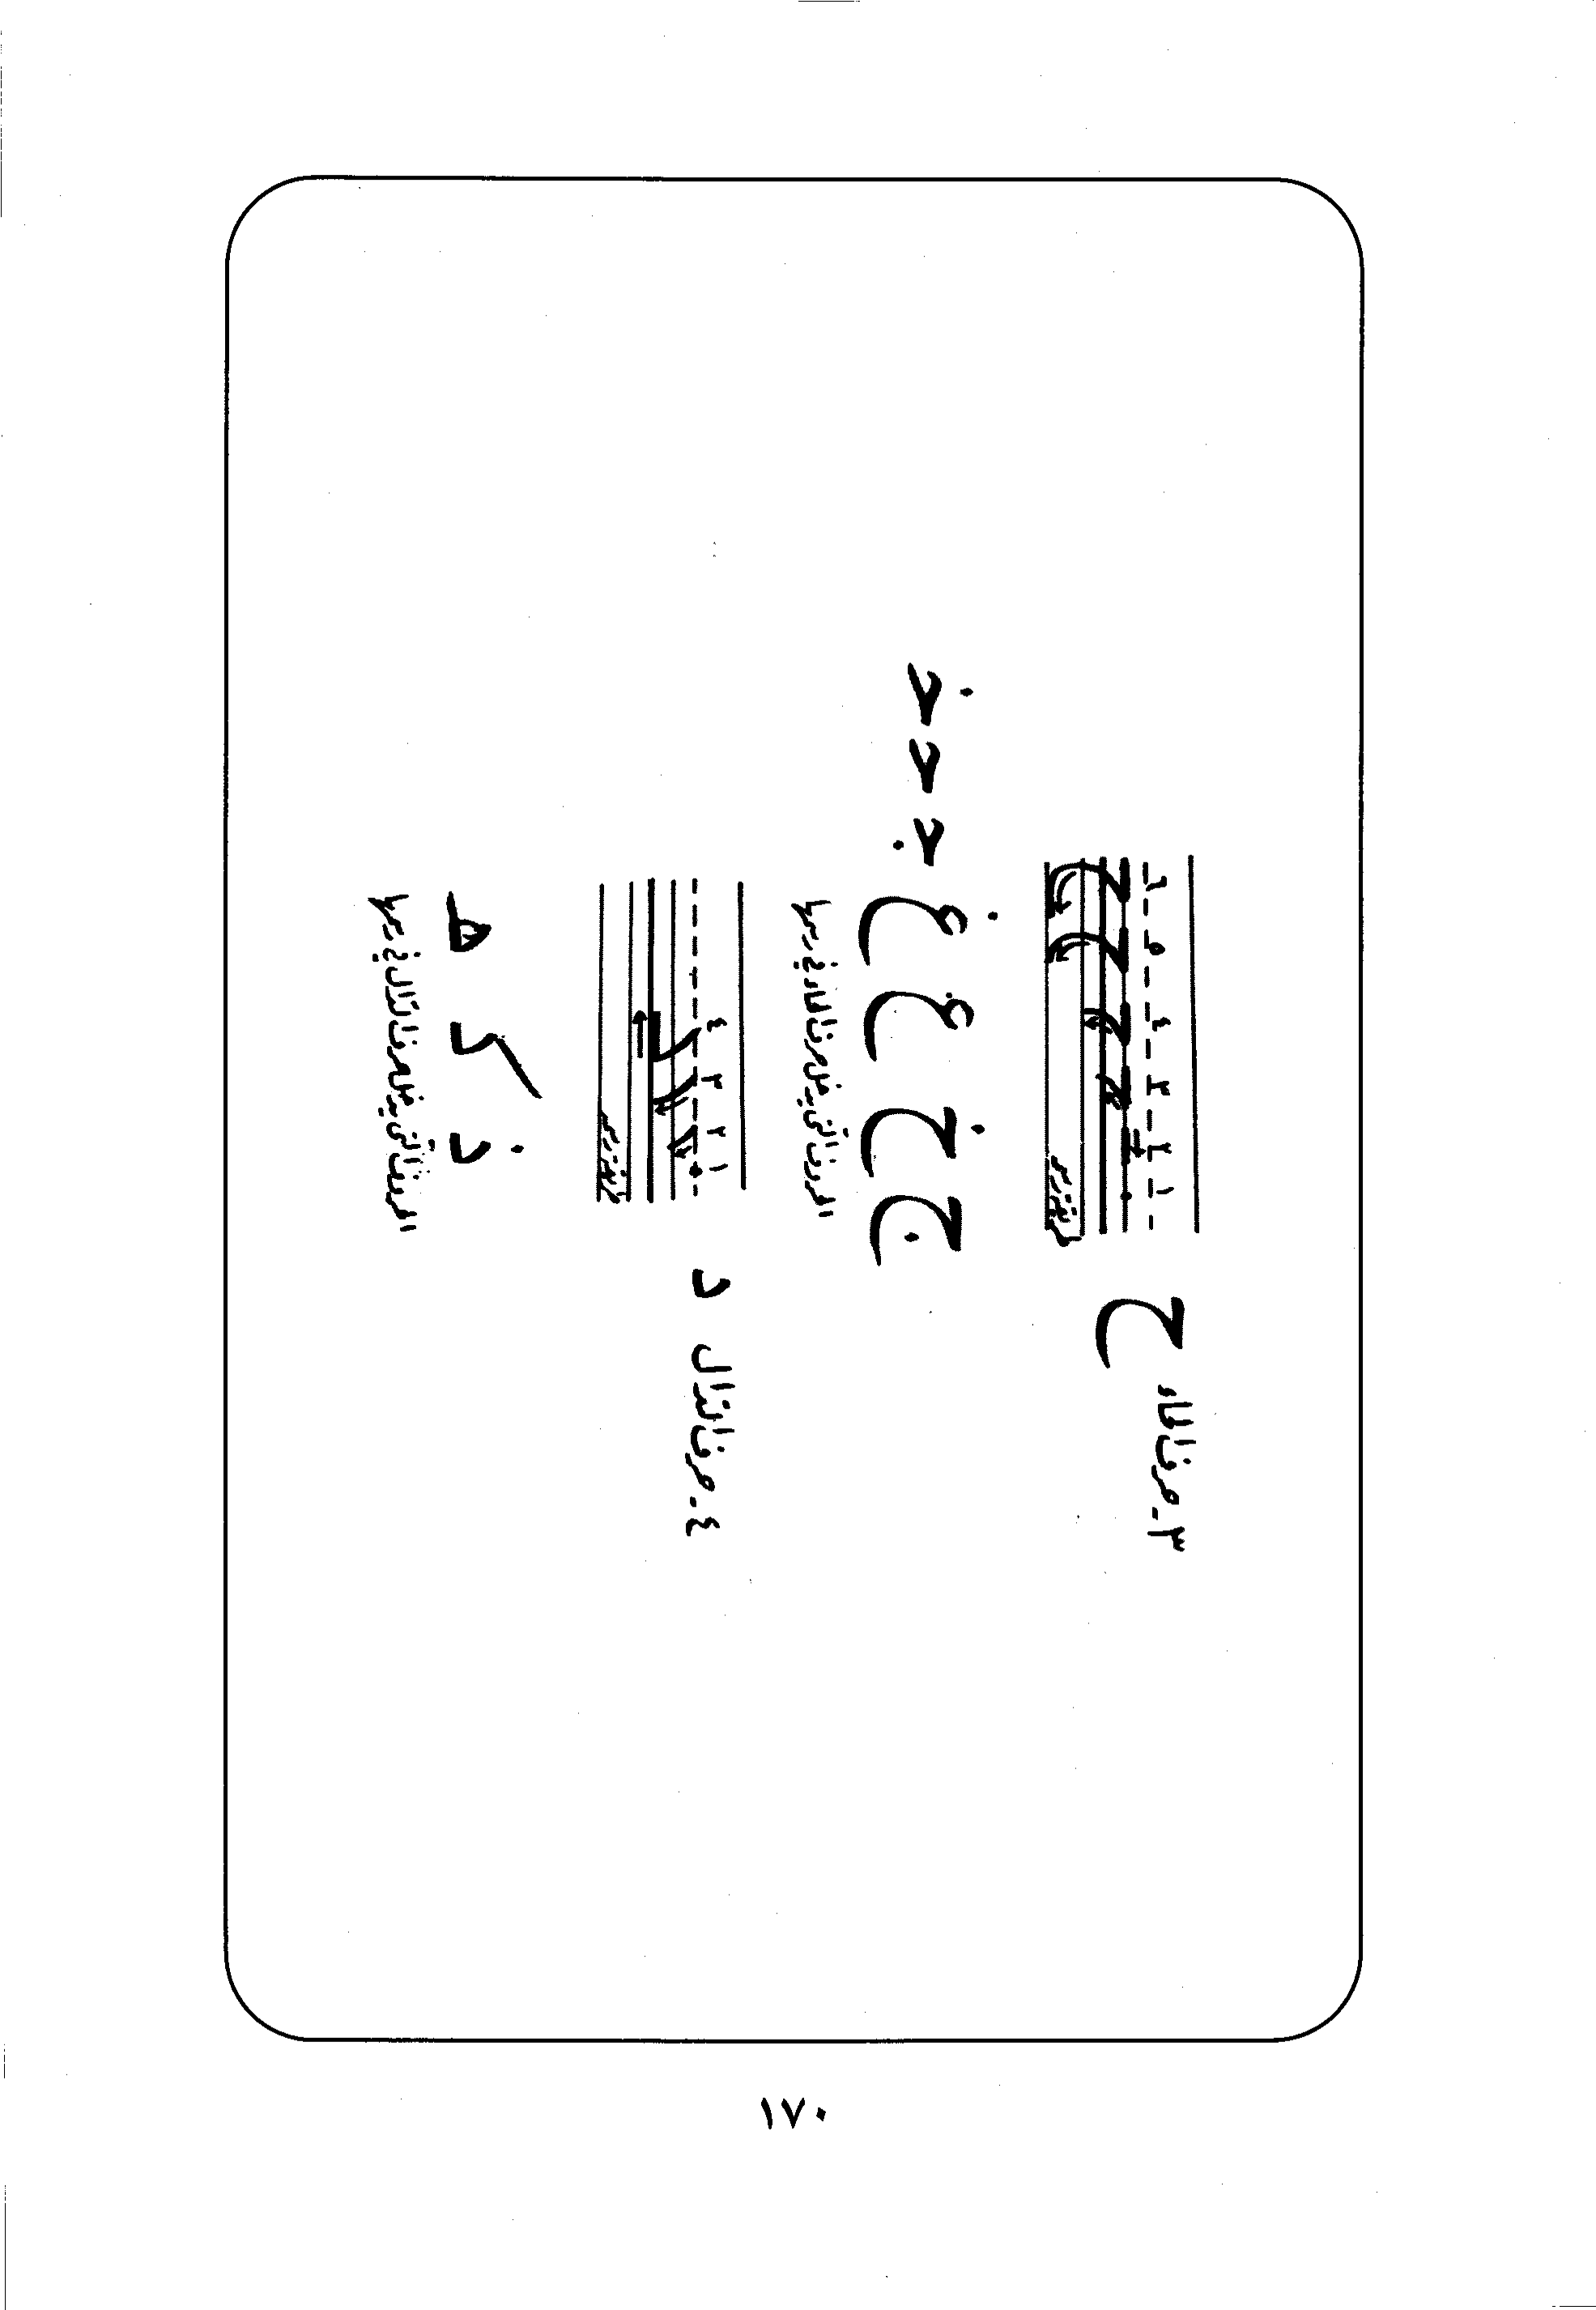 ٣ـ حرف الحاء ح
١ ٢ ٣ ٤ ٥ ٦
طريقة رسم
ج خ ع غ جـ حـ خـ
الحروف التي يدخل حرف الحاء في رسمها
٤ـ حرف الدال د
١ ٢ ٣ ٤
طريقة رسم
ذ ك هـ
الحروف التي يدخل حرف الدال في رسمها
١٧٠